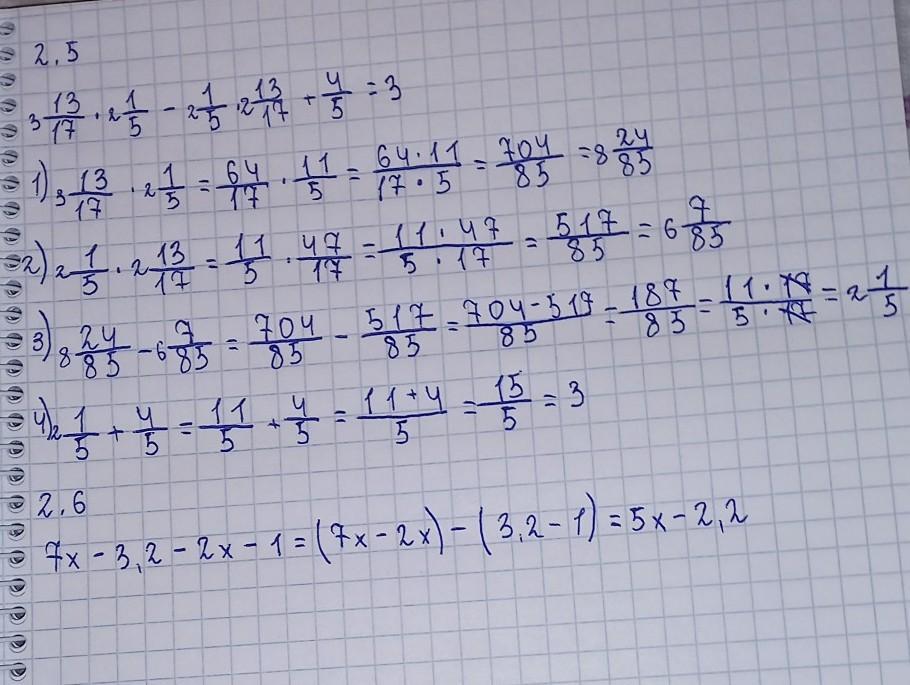 2.5
3 13/17 · 2 1/5 - 2 1/5 · 2 13/17 + 4/5 = 3
1) 3 13/17 · 2 1/5 = 64/17 · 11/5 = 64·11/17·5 = 704/85 = 8 24/85
2) 2 1/5 · 2 13/17 = 11/5 · 47/17 = 11·47/5·17 = 517/85 = 6 7/85
3) 8 24/85 - 6 7/85 = 704/85 - 517/85 = 704-517/85 = 187/85 = 11·17/5·17 = 2 1/5
4) 2 1/5 + 4/5 = 11/5 + 4/5 = 11+4/5 = 15/5 = 3
2.6
7x - 3,2 - 2x - 1 = (7x - 2x) - (3,2 - 1) = 5x - 2,2